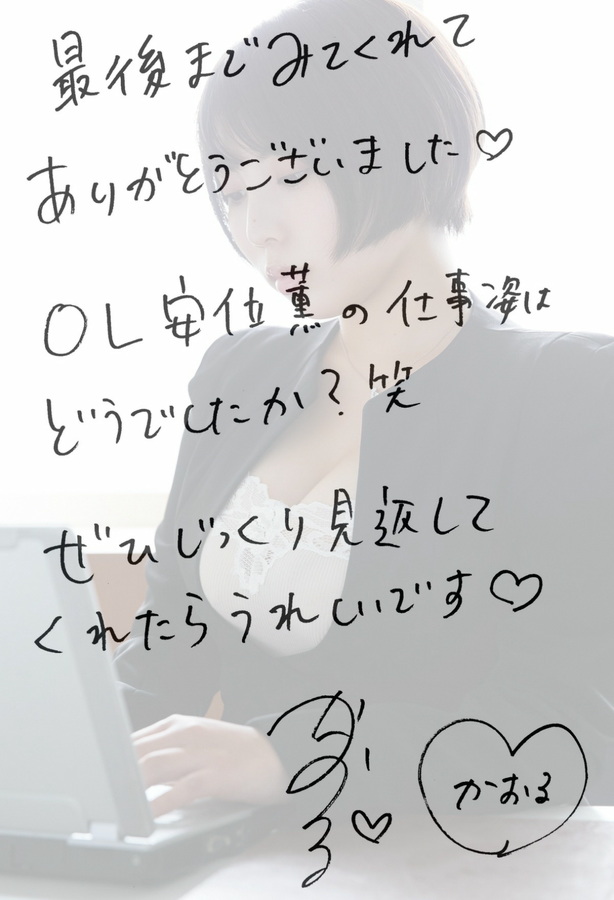 最後までみてくれて
ありがとうございました♡
OL安位薫の仕事姿は
どうでしたか？笑
ぜひじっくり見返して
くれたらうれしいです♡
かおる